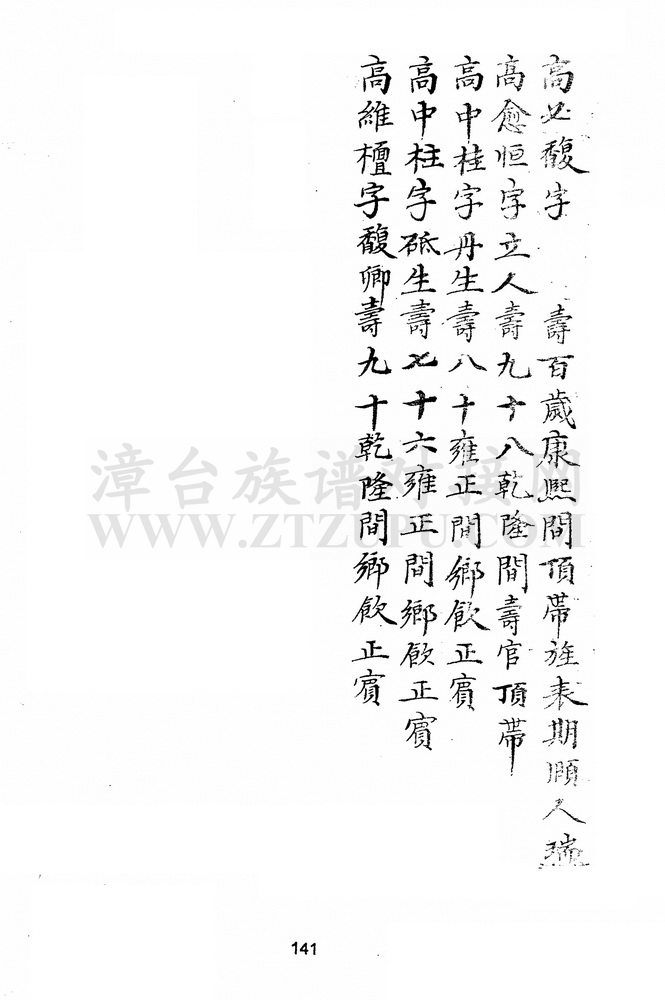 高必馥字 壽百歲康熙間頂帶旌表期頤人瑞
高愈恒字立人壽九十八乾隆間壽官頂帶
高中桂字丹生壽八十雍正間鄉飲正賓
高中柱字砥生壽七十六雍正間鄉飲正賓
高維檀字馥卿壽九十乾隆間鄉飲正賓
漳台族谱对接网
WWW.ZTZUPU.COM
141